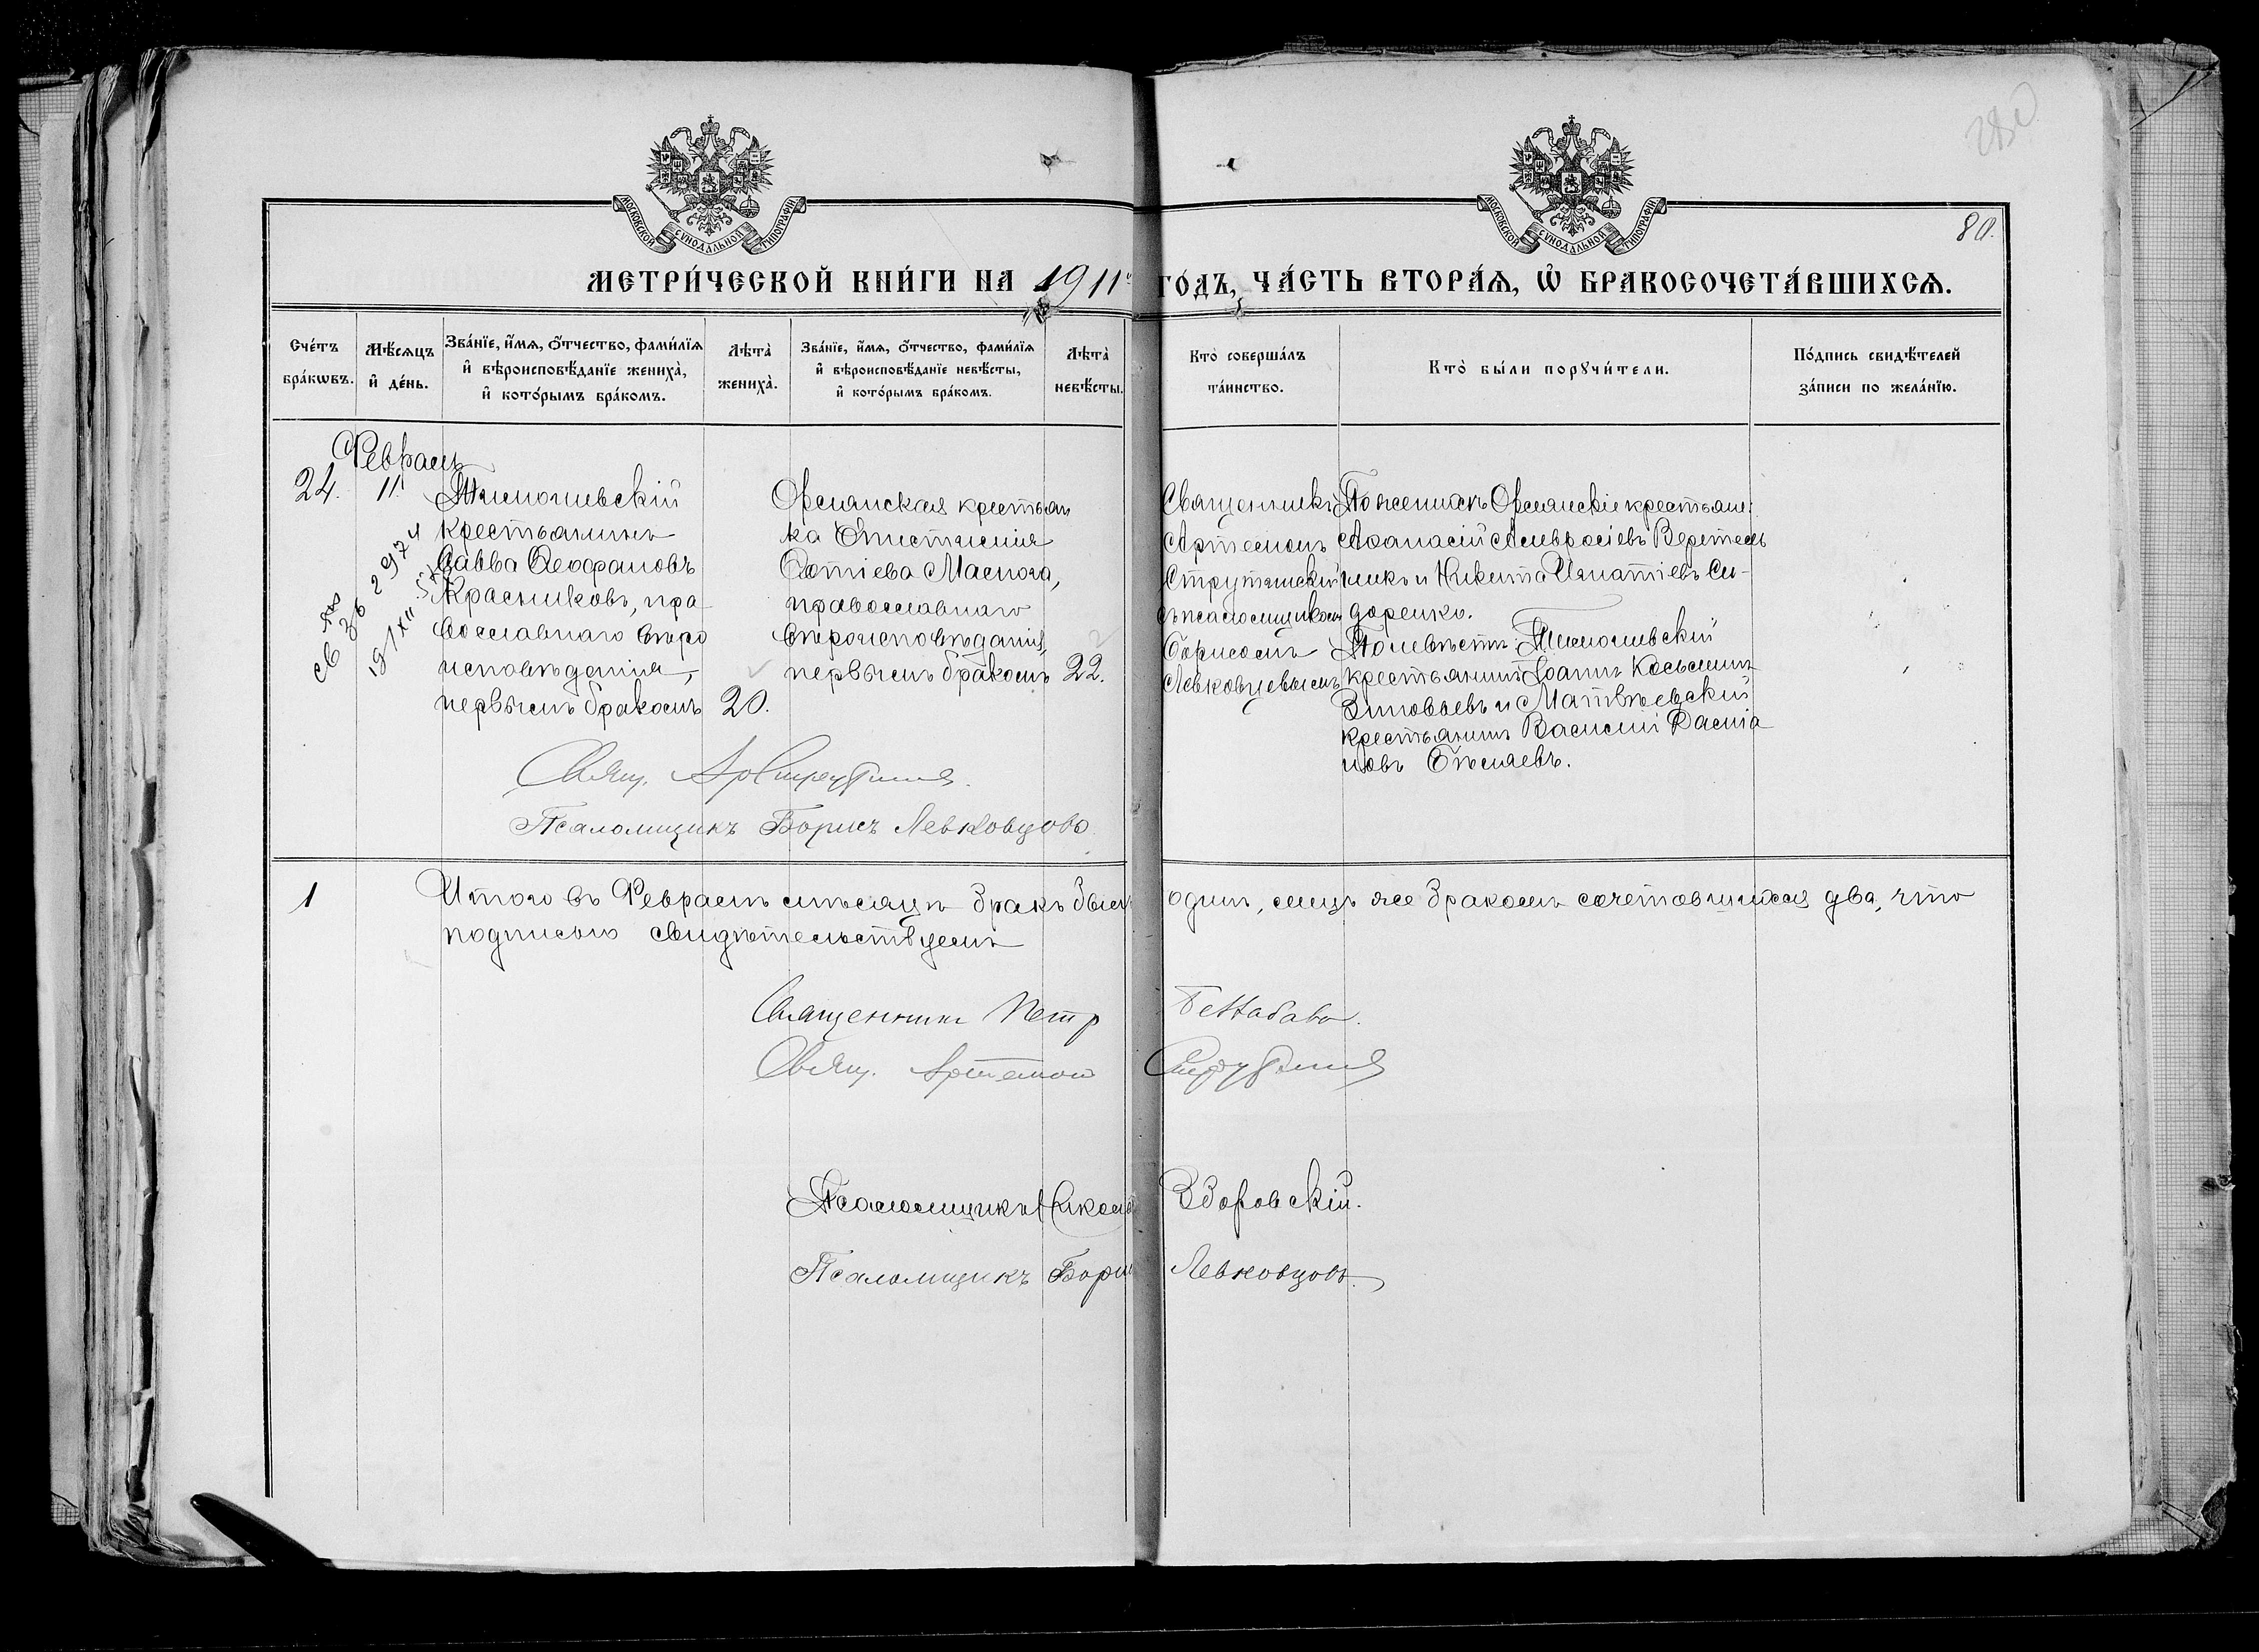 280
80.
МОСКОВСКОЙ СУНОДАЛЬНОЙ ТИПОГРАФІИ
МОСКОВСКОЙ СУНОДАЛЬНОЙ ТИПОГРАФІИ
МЕТРИ́ЧЕСКОЙ КНИ́ГИ НА 1911 ГО́ДЪ, ЧА́СТЬ ВТОРА́Я, Ѽ БРАКОСОЧЕТА́ВШИХСЯ.
Сче́тъ бра́кѡвъ.
Мѣ́сяцъ и҆ де́нь.
Зва́нїе, и҆́мя, ѻ҆́тчество, фами́лїя
и҆ вѣроисповѣ́данїе жениха̀,
и҆ кото́рымъ бра́комъ.
Лѣта̀ жениха̀.
Зва́нїе, и҆́мя, ѻ҆́тчество, фами́лїя
и҆ вѣроисповѣ́данїе невѣ́сты,
и҆ кото́рымъ бра́комъ.
Лѣта̀ невѣ́сты.
Кто̀ соверша́лъ та́инство.
Кто̀ бы́ли порꙋчи́тели.
По́дпись свидѣ́телей за́писи по жела́нїю.
Февраль
24.
11.
Тимошевскій
крестьянинъ
Савва Ѳеофановъ
Красниковъ, пра
вославнаго вѣро
исповѣданія,
первымъ бракомъ
20.
Орлянская крестьян
ка Епистимія
Фотіева
православнаго
вѣроисповѣданія,
первымъ бракомъ
22.
Священникъ
Артемонъ
съ псаломщикомъ
Борисомъ
Левковцевымъ
По женихѣ: Орлянскіе крестьяне:
Аѳанасій Амвросіевъ Веретель
никъ и Никита Игнатіевъ Си-
доренко.
По невѣстѣ: Тимошевскій
крестьянинъ Іоаннъ Косьминъ
Зиновьевъ и Матвѣевскій
крестьянинъ Василій Даміа
новъ Бѣляевъ.
Свящ.
Псаломщикъ Борисъ Левковцовъ
1
Итого въ Февралѣ мѣсяцѣ бракъ былъ одинъ, лицъ же бракомъ сочетавшихся два, что
подписью свидѣтельствуемъ
Священникъ Петр
Свящ. Артемон
Псаломщикъ Никола Зборовскій.
Псаломщикъ Борис Левковцовъ.